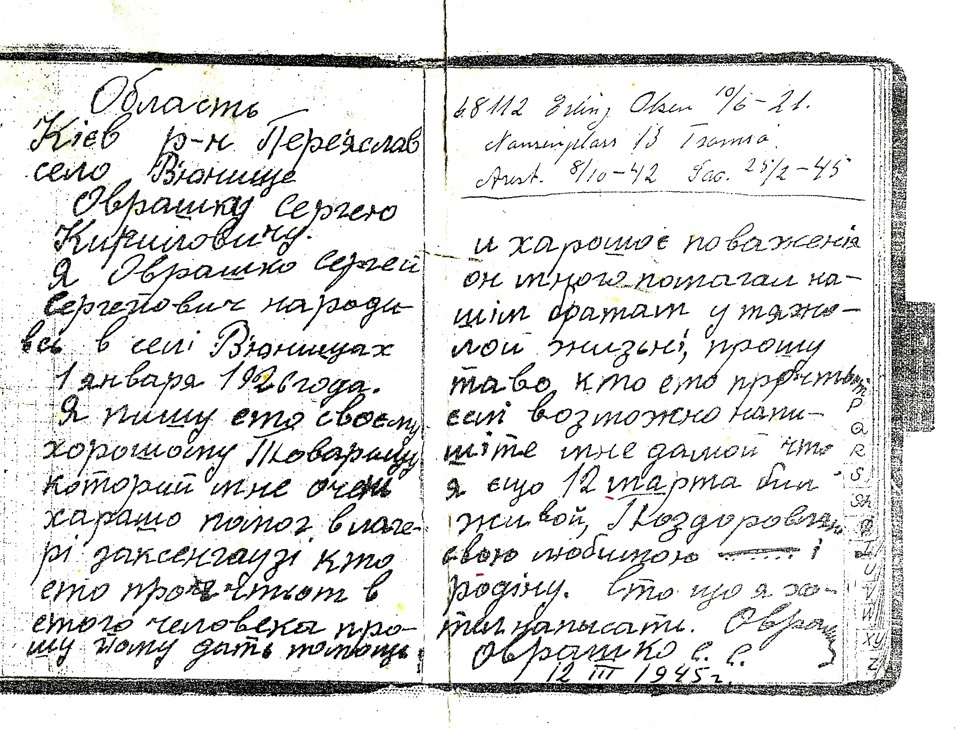 Область
Кіев р-н Переяслав
село Вюнище
Оврашку Сергею
Кириловичу.
Я Оврашко Сергей
Сергейович народи-
всь в селі Вюнищах
1 января 1926 года.
Я пишу ето своему
хорошому Товарищу
которий мне очень
харашо помог в лаге-
рі заксенгаузі. кто
ето прочтьот в
етого человека про-
шу йому дать помощь
68112 Erling Olsen 10/6-21.
Nansenplass 13 Tromsø.
Arrest. 8/10-42 Sac. 25/2-45
и харошоє поваженія
он много помагал на-
шім братам у тяжо-
лой жизьні, прошу
таво, кто ето прочтьот
еслі возможно напи-
шіте мне дамой что
я ещо 12 марта бил
живой, Поздоровляю
свою любимою і
родіну. Ето що я хо-
тел написать. Овраш
Оврашко С. С.
12 III 1945 г.
P
Q
R
S
Sh
T
U
V
W
XY
Z